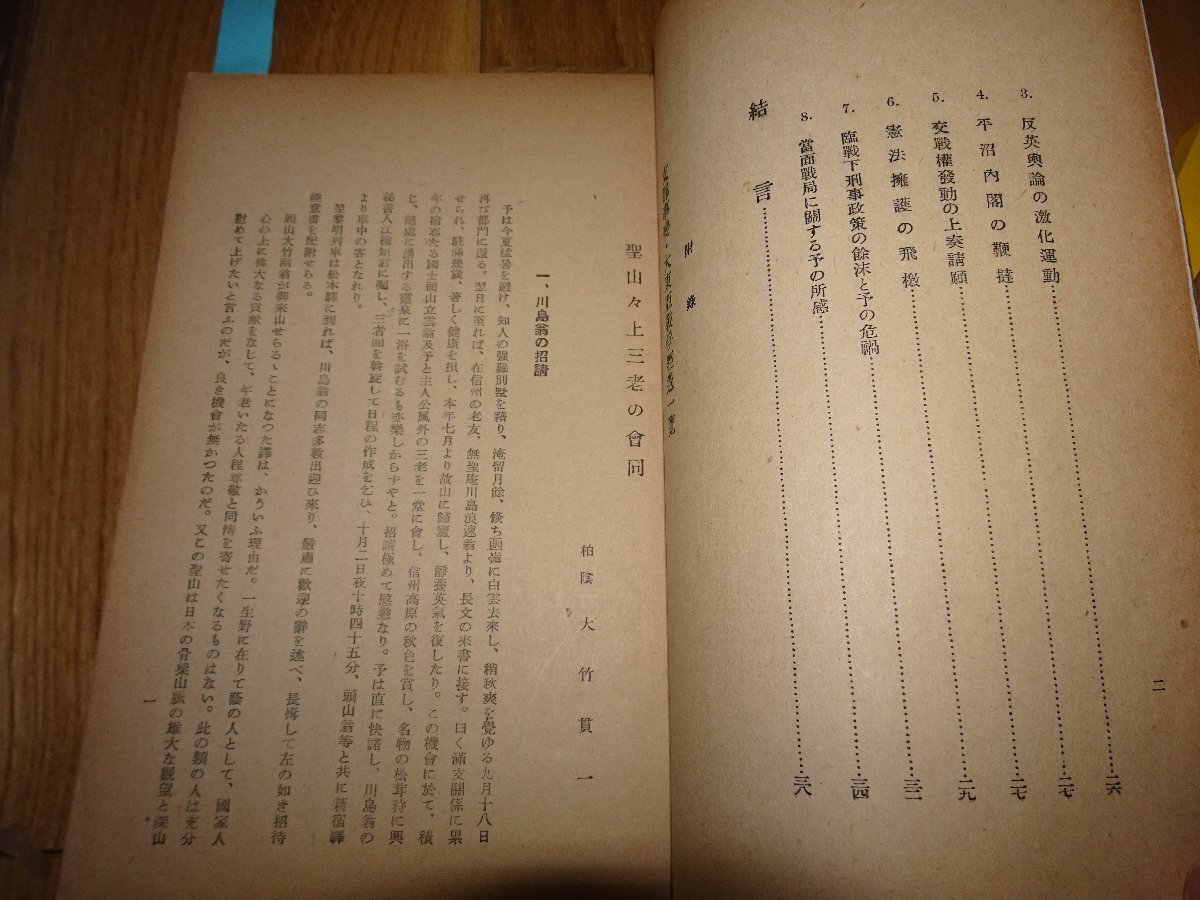 3. 反英輿論の激化運動……二六
4. 平沼內閣の鞭撻……二七
5. 交戰權發動の上奏請願……二七
6. 憲法擁護の飛檄……二九
7. 臨戰下刑事政策の餘沫と予の危禍……三二
8. 當面戰局に關する予の所感……三四
結言……三八
附錄
二
聖山々上三老の會同
柏蔭大竹貫一
一、川島翁の招請
予は今夏猛暑を避け、知人の强羅別墅を藉り、淹留月餘、倏ち函嶺に白雲去來し、稍秋爽を覺ゆる九月十八日
再び都門に還る。翌日に至れば、在信州の老友、無聖庵川島浪速翁より、長文の來書に接す。曰く滿支關係に累
せられ、駐滿幾歲、著しく健康を損し、本年七月より故山に歸廬し、靜養英氣を復したり。この機會に於て、積
年の宿志たる國士頭山立雲翁及予と主人公風外の三老を一堂に會し、信州高原の秋色を賞し、名物の松茸狩に興
じ、隨處に湧出する靈泉に一浴を試むるも亦樂しからずやと。招請極めて慇懃なり。予は直に快諾し、川島翁の
秘書入江種矩君に囑し、三者間を斡旋して日程の作成を乞ひ、十月二日夜十時四十五分、頭山翁等と共に新宿驛
より車中の客となれり。
翌黎明列車は松本驛に到れば、川島翁の同志多數出迎ひ來り、嚴肅に歡迎の辭を述べ、長揖して左の如き招待
趣意書を配附せらる。
頭山大竹兩翁が御來山せらるゝことになつた譯は、かういふ理由だ。一生野に在りて蔭の人として、國家人
心の上に偉大なる貢獻をなして、年老いたる人程尊敬と同情を寄せたくなるものはない。此の類の人は充分
慰めて上げたいと言ふのだが、良き機會が無かつたのだ。又この聖山は日本の骨梁山脈の雄大な觀望と深山
一